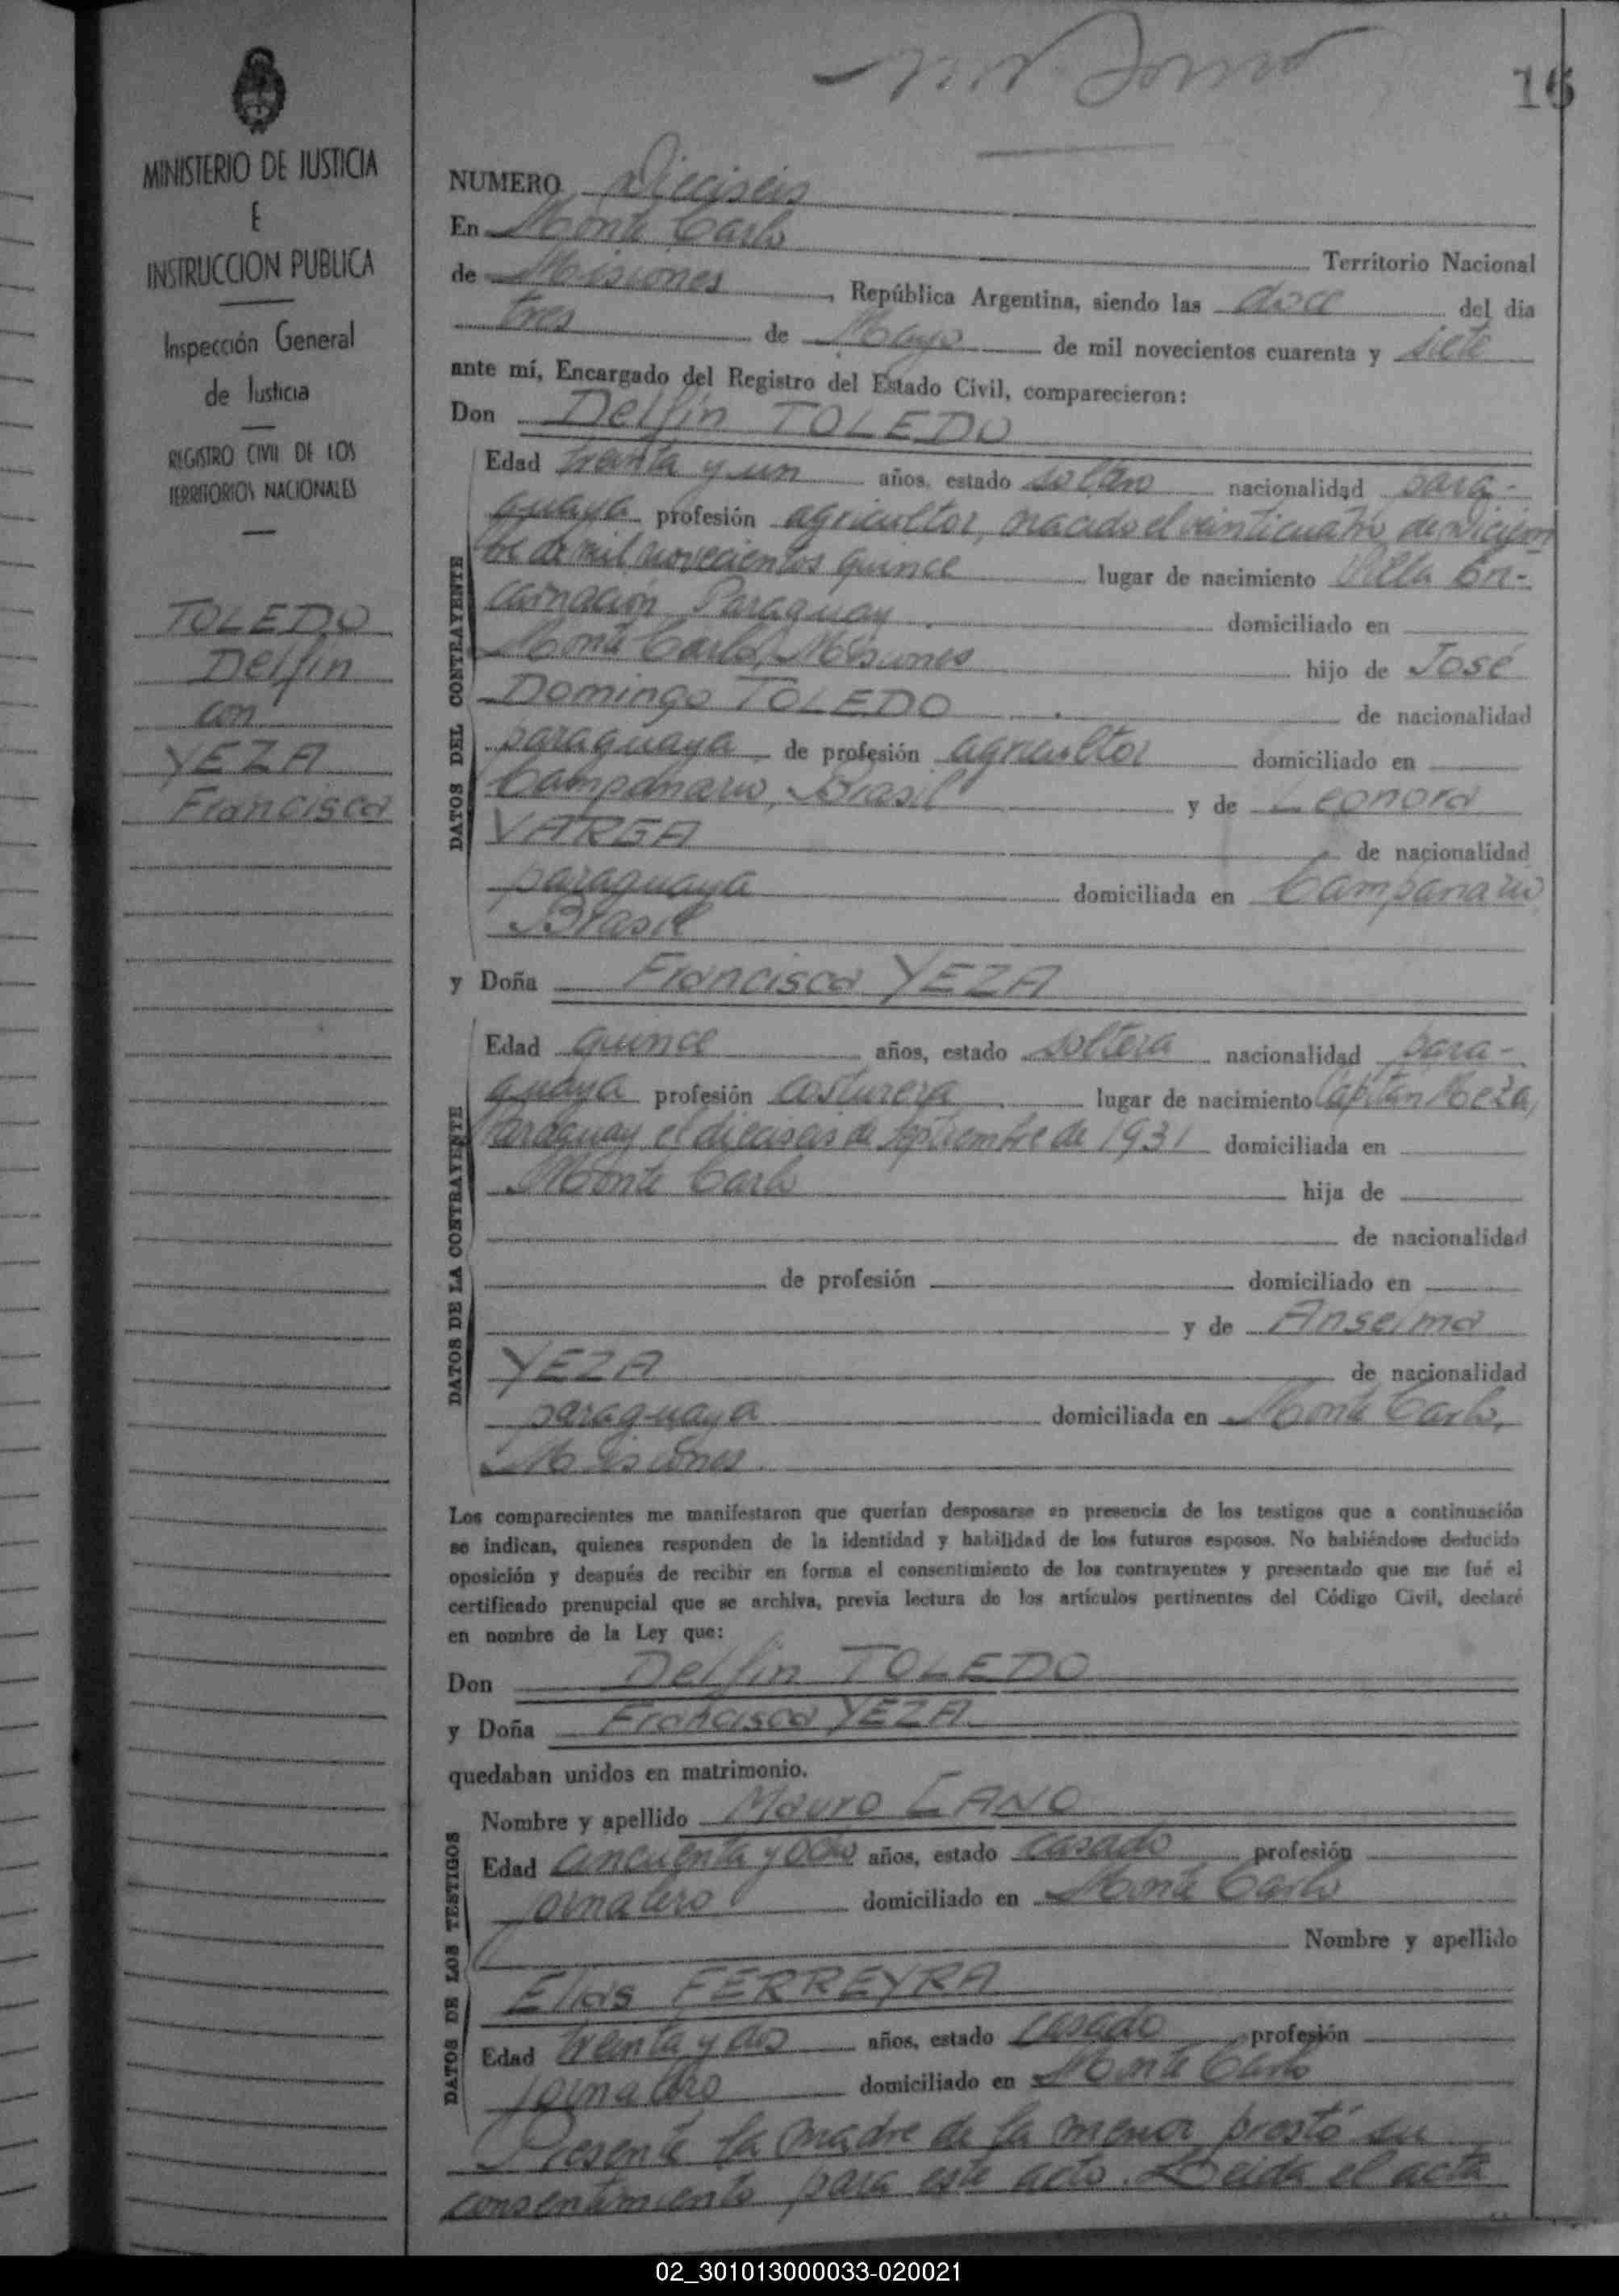 16
MINISTERIO DE JUSTICIA
E
INSTRUCCION PUBLICA
Inspección General
de Justicia
REGISTRO CIVIL DE LOS
TERRITORIOS NACIONALES
TOLEDO
Delfín
con
YEZA
Francisca
NUMERO Dieciseis
En Monte Carlo
Territorio Nacional
de Misiones, República Argentina, siendo las doce del dia
tres de Mayo de mil novecientos cuarenta y siete
ante mí, Encargado del Registro del Estado Civil, comparecieron:
Don Delfín TOLEDO
DATOS DEL CONTRAYENTE
Edad treinta y un años, estado soltero nacionalidad para-
guaya profesión agricultor, nacido el veinticuatro de Diciem
bre de mil novecientos quince lugar de nacimiento Villa En-
carnación Paraguay. domiciliado en
Monte Carlo, Misiones hijo de José
Domingo TOLEDO de nacionalidad
paraguaya de profesión agricultor domiciliado en
Campanario, Brasil y de Leonora
VARGA de nacionalidad
paraguaya domiciliada en Campanario
Brasil
y Doña Francisca YEZA
DATOS DE LA CONTRAYENTE
Edad quince años, estado soltera nacionalidad para-
guaya profesión costurera lugar de nacimiento Capitán Meza,
Paraguay el dieciseis de Septiembre de 1931 domiciliada en
Monte Carlo hija de
de nacionalidad
de profesión domiciliado en
y de Anselma
YEZA de nacionalidad
paraguaya domiciliada en Monte Carlo,
Misiones
Los comparecientes me manifestaron que querían desposarse en presencia de los testigos que a continuación
se indican, quienes responden de la identidad y habilidad de los futuros esposos. No habiéndose deducido
oposición y después de recibir en forma el consentimiento de los contrayentes y presentado que me fué el
certificado prenupcial que se archiva, previa lectura de los artículos pertinentes del Código Civil, declaré
en nombre de la Ley que:
Don Delfín TOLEDO
y Doña Francisca YEZA
quedaban unidos en matrimonio.
DATOS DE LOS TESTIGOS
Nombre y apellido Mauro CANO
Edad cincuenta y ocho años, estado casado profesión
jornalero domiciliado en Monte Carlo
Nombre y apellido
Elías FERREYRA
Edad treinta y dos años, estado casado profesión
jornalero domiciliado en Monte Carlo
Presente la madre de la menor prestó su
consentimiento para este acto. Leida el acta
02_301013000033-020021